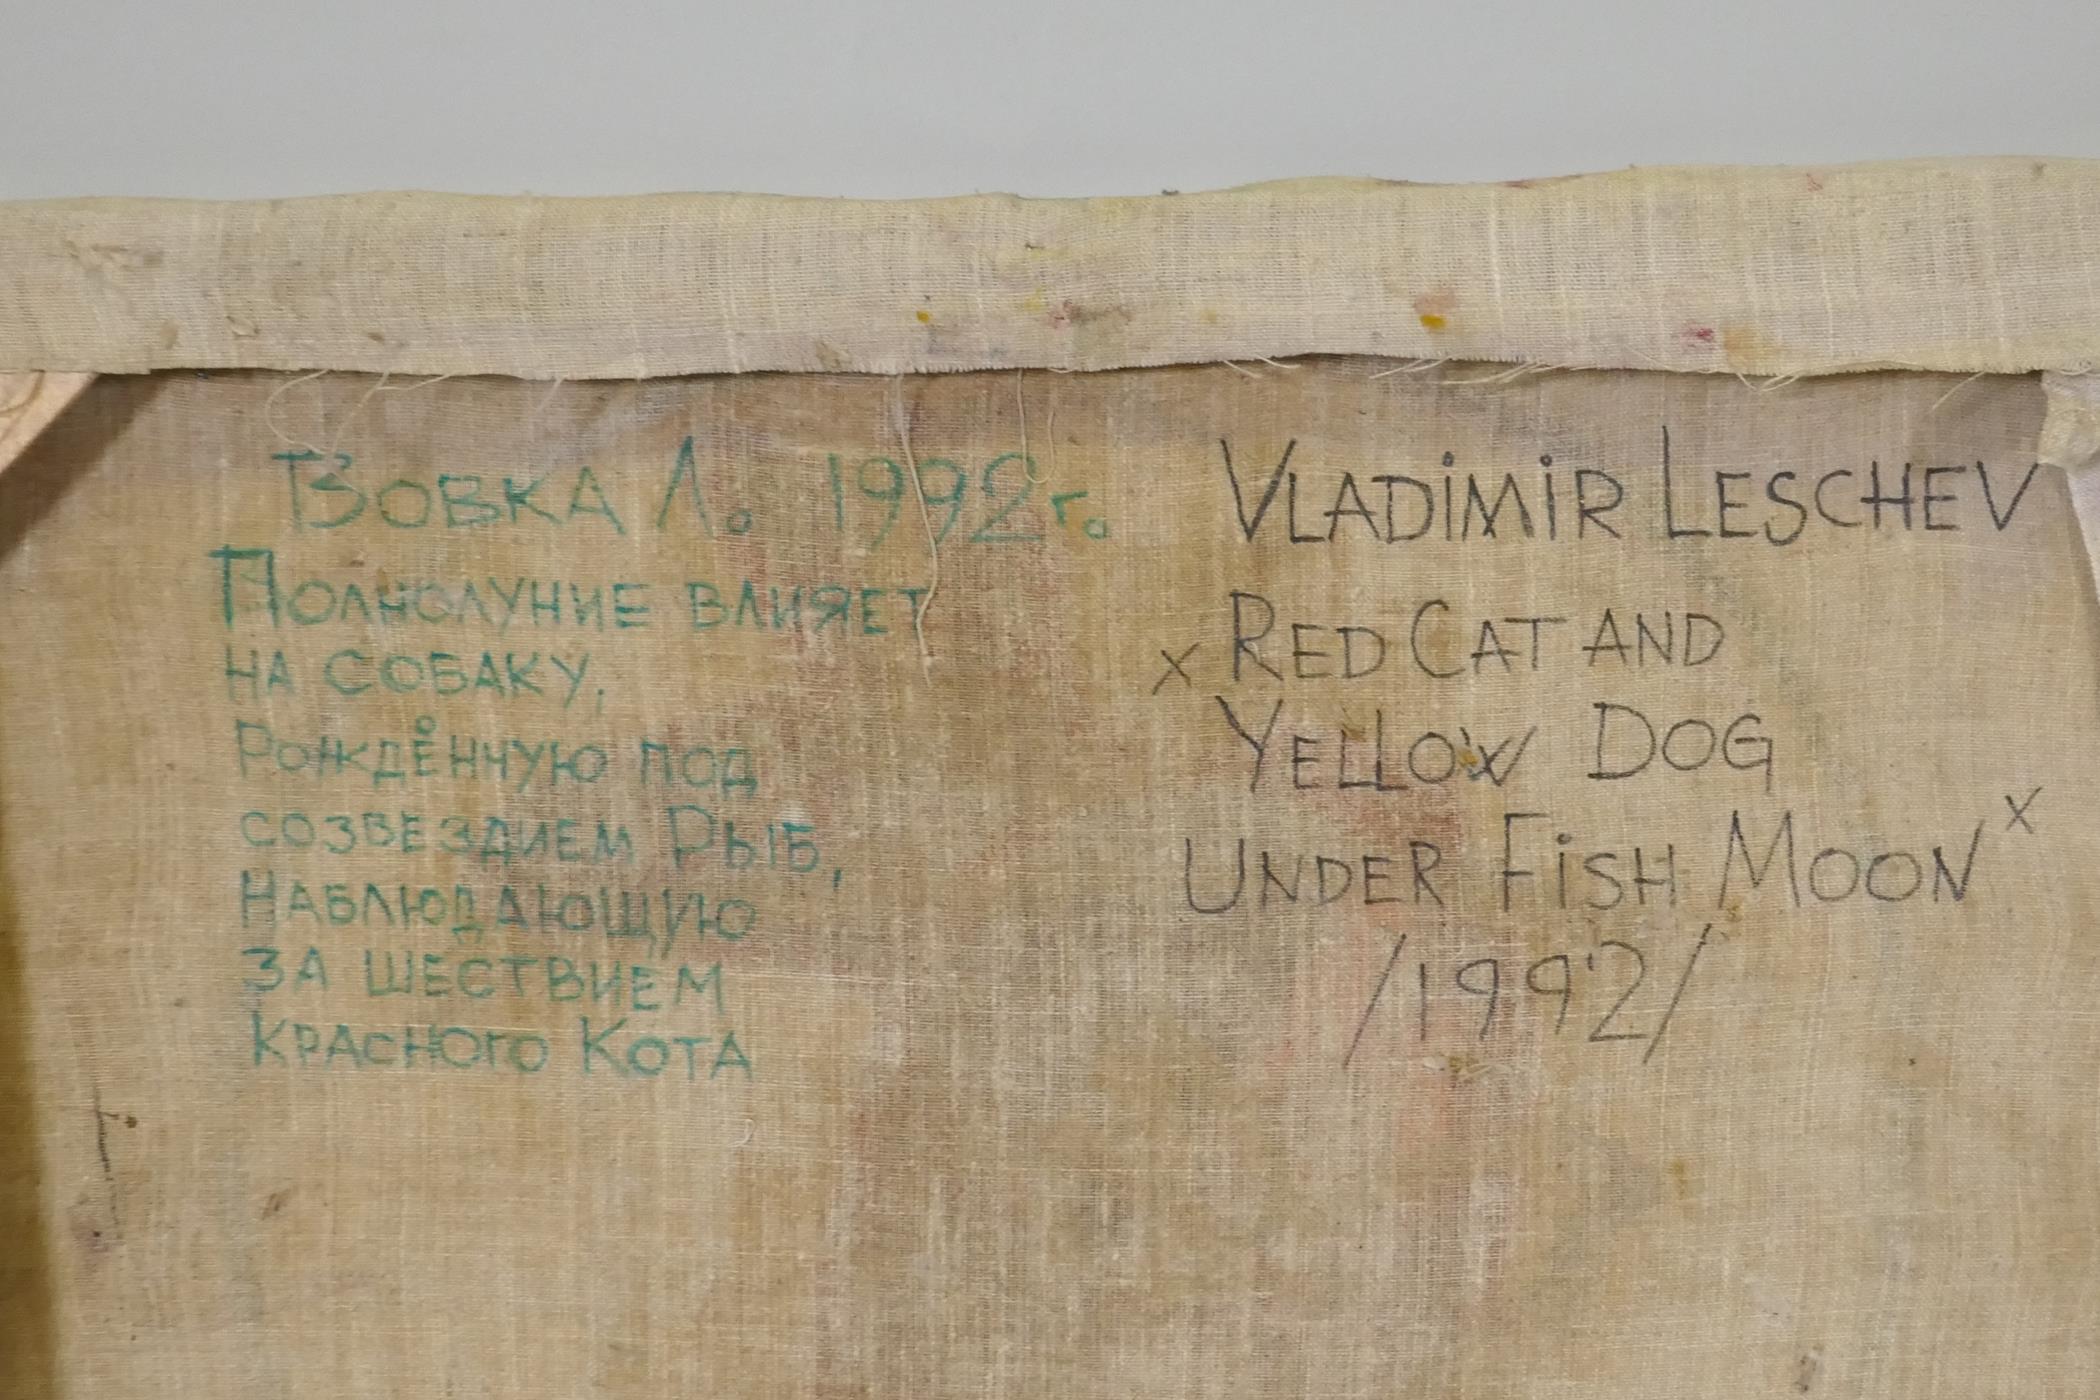 Вовка Л. 1992 г.
Полнолуние влияет
на собаку,
Рождённую под
созвездием Рыб,
Наблюдающую
за шествием
Красного Кота
VLADIMIR LESCHEV
x RED CAT AND
YELLOW DOG
UNDER FISH MOON x
/1992/